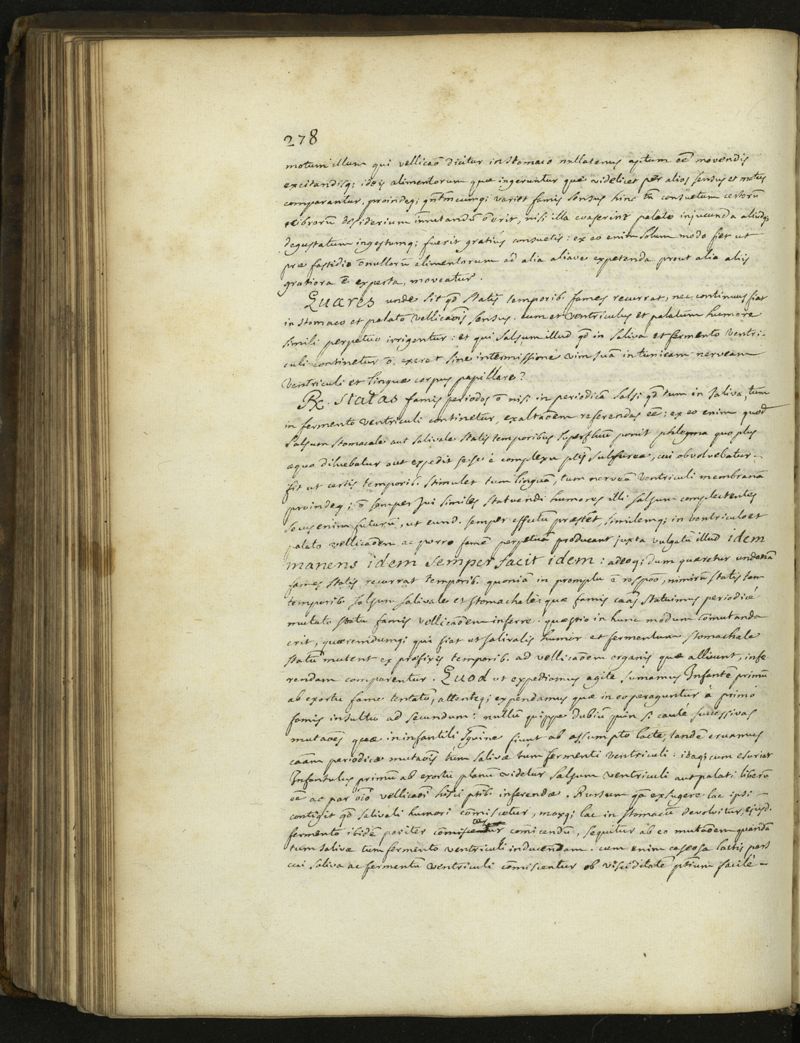 278
motum illum qui vellicaõ dicitur in stomaco nullatenus aptum eẽ movendis
excitandisq; ideis alimentorum quæ ingeruntur quæ videlicet per alios sensus et motus
comparantur, proindeq; variet famis sensus hinc tñ consuetum certorũ
desiderium immutandũ õ erit, nisi illa evaserint palato injucunda aliudq;
degustatum ingestumq; fuerit gratius consuetis: ex eo enim solum modo fiet ut
præ fastidio õ nullorũ alimentorum ad alia aliave expetenda prout alia aliis
gratiora ẽ experta, moveatur.
Quares unde sit qd statis temporib. fames recurrat, nec continuus fiat
in stomaco et palato vellicaõis sensus. cum et ventriculus et palatum humore
simili perpetuo irrigentur: et qui salsum illud qd in saliva et fermento ventri-
culi continetur õ exerat sine intermissione vim suã in tunicam nerveam
ventriculi et linguæ corpus papillare?
Rx. Statas famis periodos õ nisi in periodicã salsi qd tum in saliva, tum
in fermento ventriculi continetur, exaltaõem referendas eẽ: ex eo enim quod
salsum stomacale aut salivale statis temporibus superfluũ ponit phlegma quo plus
æquo diluebatur aut expedit sese è complexu ptis sulfureæ, cui obvolvebatur-
fit ut certis temporib. stimulet tum linguã, tum nerveã ventriculi membranã
proindeq; õ semper sui similes statuendi humores illi salsum complectentes
secus enim futurũ, ut eund. semper effectũ præstet similemq; in ventriculo et
palato vellicaõem ac porro famẽ perpetuã producant juxta vulgatũ illud idem
manens idem semper facit idem: adeoq; dum quæretur unde
fames statis recurrat temporib. quoniã in promptu ẽ respõo, nimirũ statis tan-
temporib. salsum salivale et stomachale quæ famis caas statuimus periodicè
mutato statu famis vellicaõem inferre. quæstio in hunc modum cõmutanda
erit, quærendumq; qui fiat ut salivalis humor et fermentum stomachale
statũ mutent ex præfixis temporib. ad vellicaõem organis quæ alluunt, infe
rendam comparentur. Quod ut expediamus agile sumamus Infantẽ primũ
ab exortu fame tentatũ, attenteq; expendamus quæ in eo peraguntur à primo
famis insultu ad secundum: nullũ quippe dubiũ quin si cautè successivas
mutaões quæ in infantili sguine fiunt ab assumpto lacte, tandẽ eruamus
caam periodicæ mutaõis tum salivæ tum fermenti ventriculi: itaq; cum esurit
Infantulus primũ ab exortu planũ videtur salsum ventriculi aut palati liberũ
eẽ ac par vellicaõi ptib. inferendæ. Rursum qñ exsugere lac ipsi-
contigit qd salivali humori cõmiscetur, moxq; lac in stomacũ devolvitur, ejusd.
fermento ibidẽ pariter comicendũ, sequitur ab eo mutaõem quandã
tum salivæ tum fermento ventriculi inducendam. cum enim caseosa lactis pars
cui saliva ac fermentũ ventriculi cõmiscentur ob visciditatẽ ptium facilè-